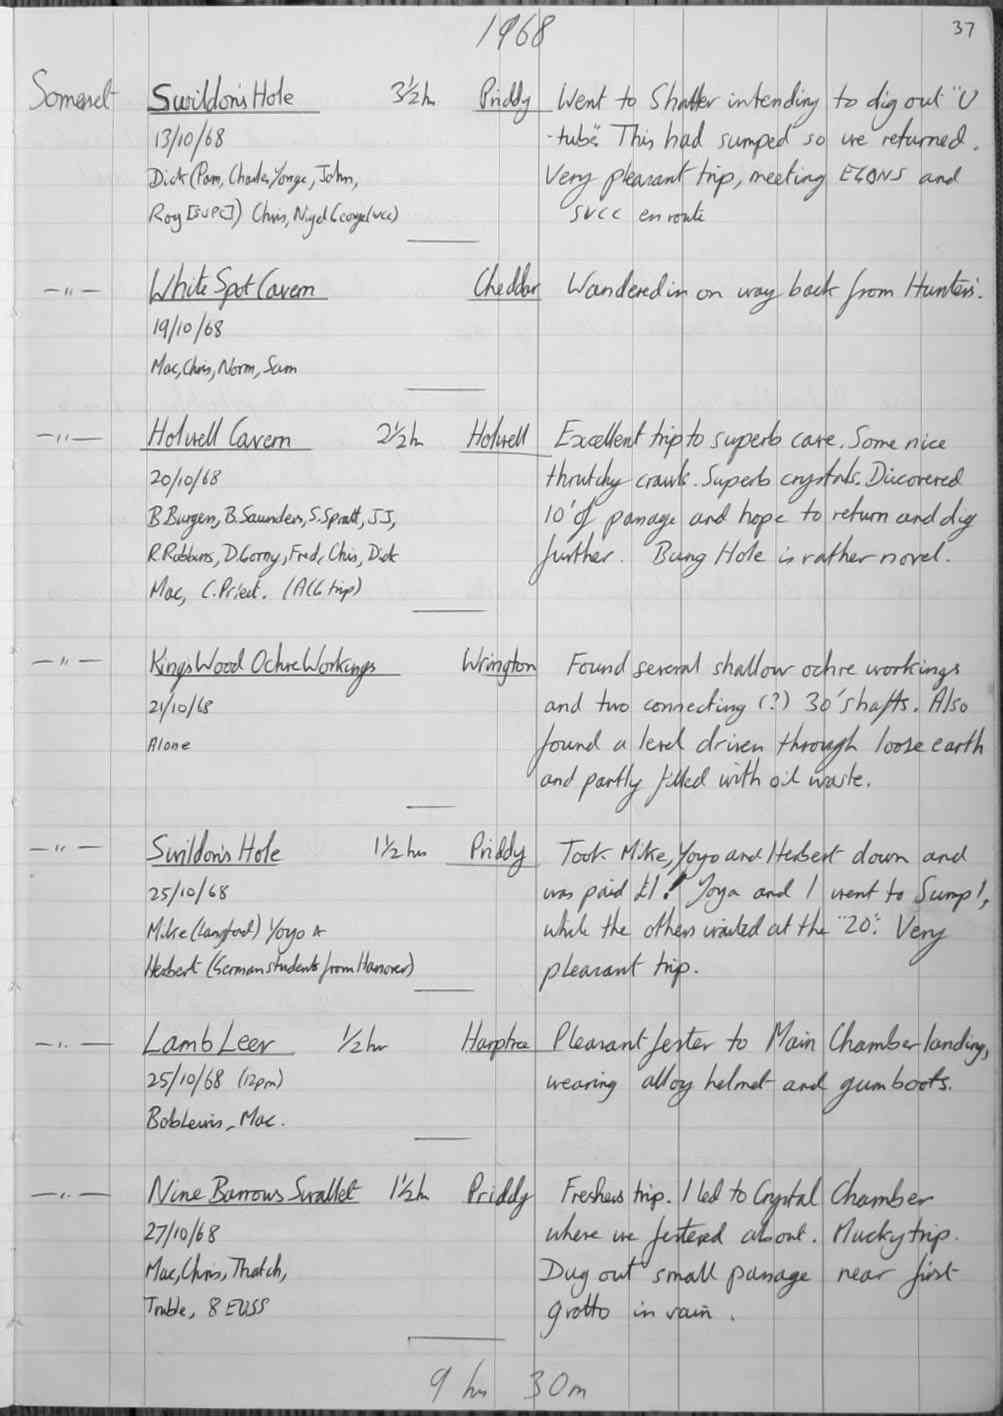 1968
37
Somerset Swildon's Hole 3½h Priddy Went to Shatter intending to dig out "U
13/10/68 -tube". This had sumped so we returned.
Dick (Pam, Charles Yonge, John, Very pleasant trip, meeting and
Roy [SVPC]) Chris, Nigel George (vcc) SVCC en route
—"— White Spot Cavern Cheddar Wandered in on way back from Hunters'.
19/10/68
Mac, Chris, Norm, Sam
—"— Holwell Cavern 2½h Holwell Excellent trip to superb cave. Some nice
20/10/68 thrutchy crawls. Superb crystals. Discovered
B. Burgen, B. Saunders, S. Spratt, J.J, 10' of passage and hope to return and dig
R. Robbins, D. Gorny, Fred, Chris, Dick further. Bung Hole is rather novel.
Mac, C. Priest. (ACG trip)
—"— Kings Wood Ochre Workings Wrington Found several shallow ochre workings
21/10/68 and two connecting (?) 30' shafts. Also
Alone found a level driven through loose earth
and partly filled with oil waste.
—"— Swildon's Hole 1½ hrs Priddy Took Mike, Yoyo and Herbert down and
25/10/68 was paid £1! Yoyo and I went to Sump 1,
Mike (Langford) Yoyo & while the others waited at the "20". Very
Herbert (German students from Hanover) pleasant trip.
—"— Lamb Leer ½ hr Harptree Pleasant fester to Main Chamber landing,
25/10/68 (12pm) wearing alloy helmet and gumboots.
Bob Lewis, Mac.
—"— Nine Barrows Swallet 1½h Priddy Freshers trip. I led to Crystal Chamber
27/10/68 where we festered about. Mucky trip.
Mac, Chris, Thatch, Dug out small passage near first
Truble, 8 EUSS grotto in vain.
9 hrs 30m